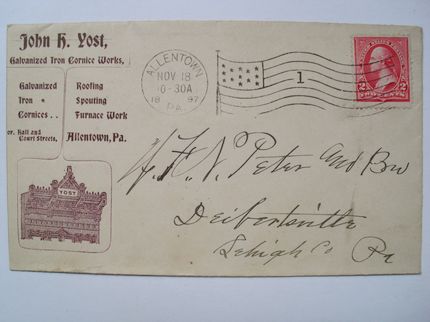 John H. Yost,
Galvanized Iron Cornice Works,
Galvanized Roofing
Iron " Spouting
Cornices . . Furnace Work
Cor. Hall and
Court Streets, Allentown, Pa.
YOST
ALLENTOWN
NOV 18
10-30A
18 97
PA.
1
2 2
TWO CENTS
Peter and Bro
Deibertsville
Lehigh Co Pa